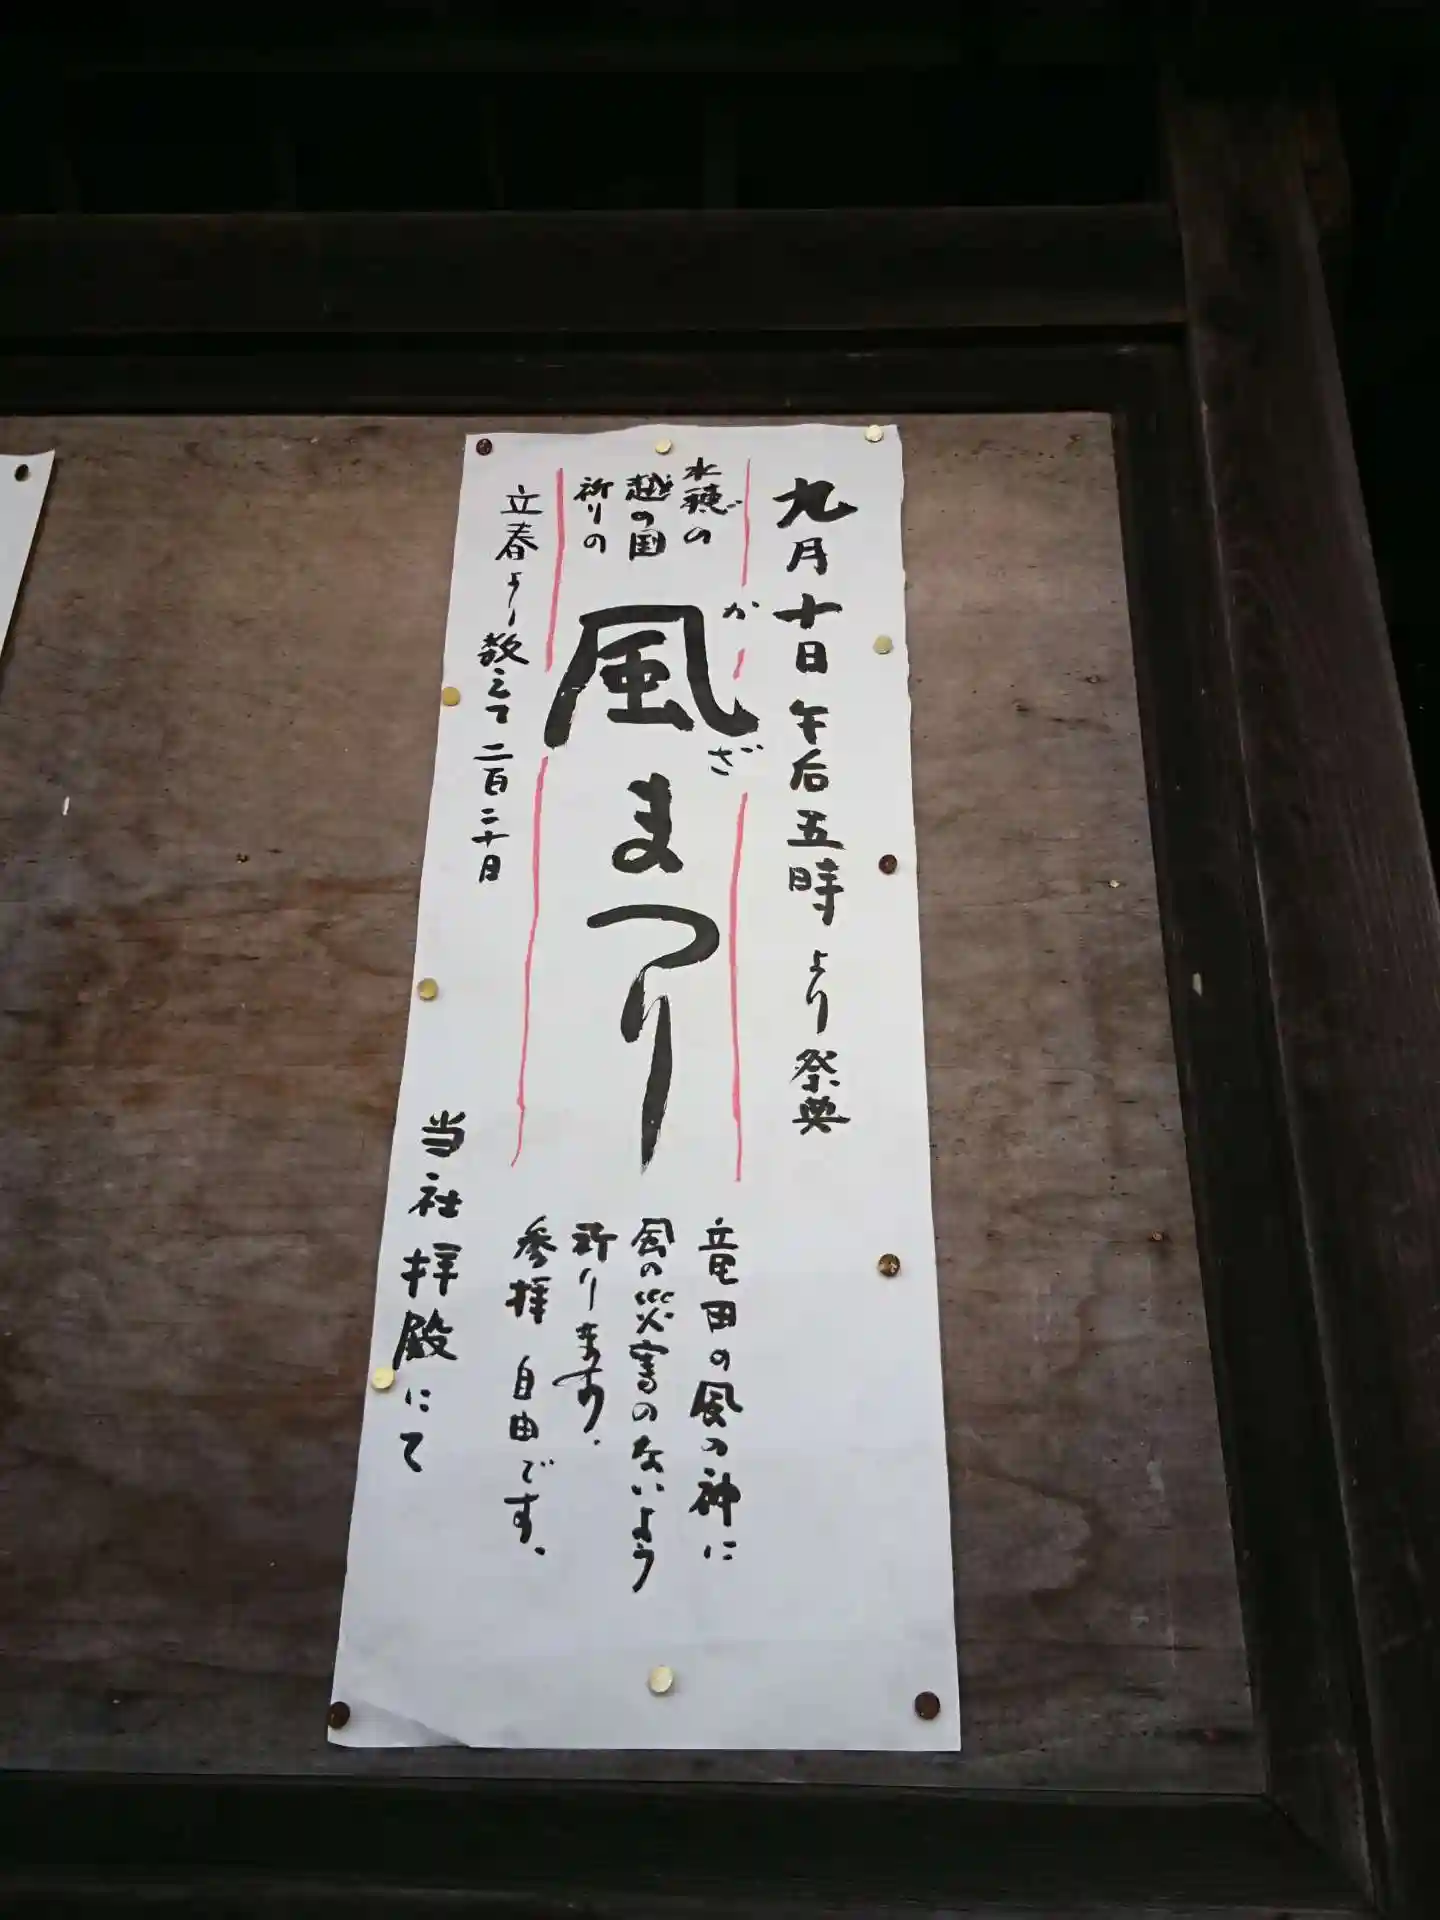 九月十日午后五時より祭典
水穂の
越の国
祈りの
風まつり
かざ
立春より数えて二百二十日
竜田の風の神に
風の災害のないよう
祈ります。
参拝 自由です。
当社拝殿にて